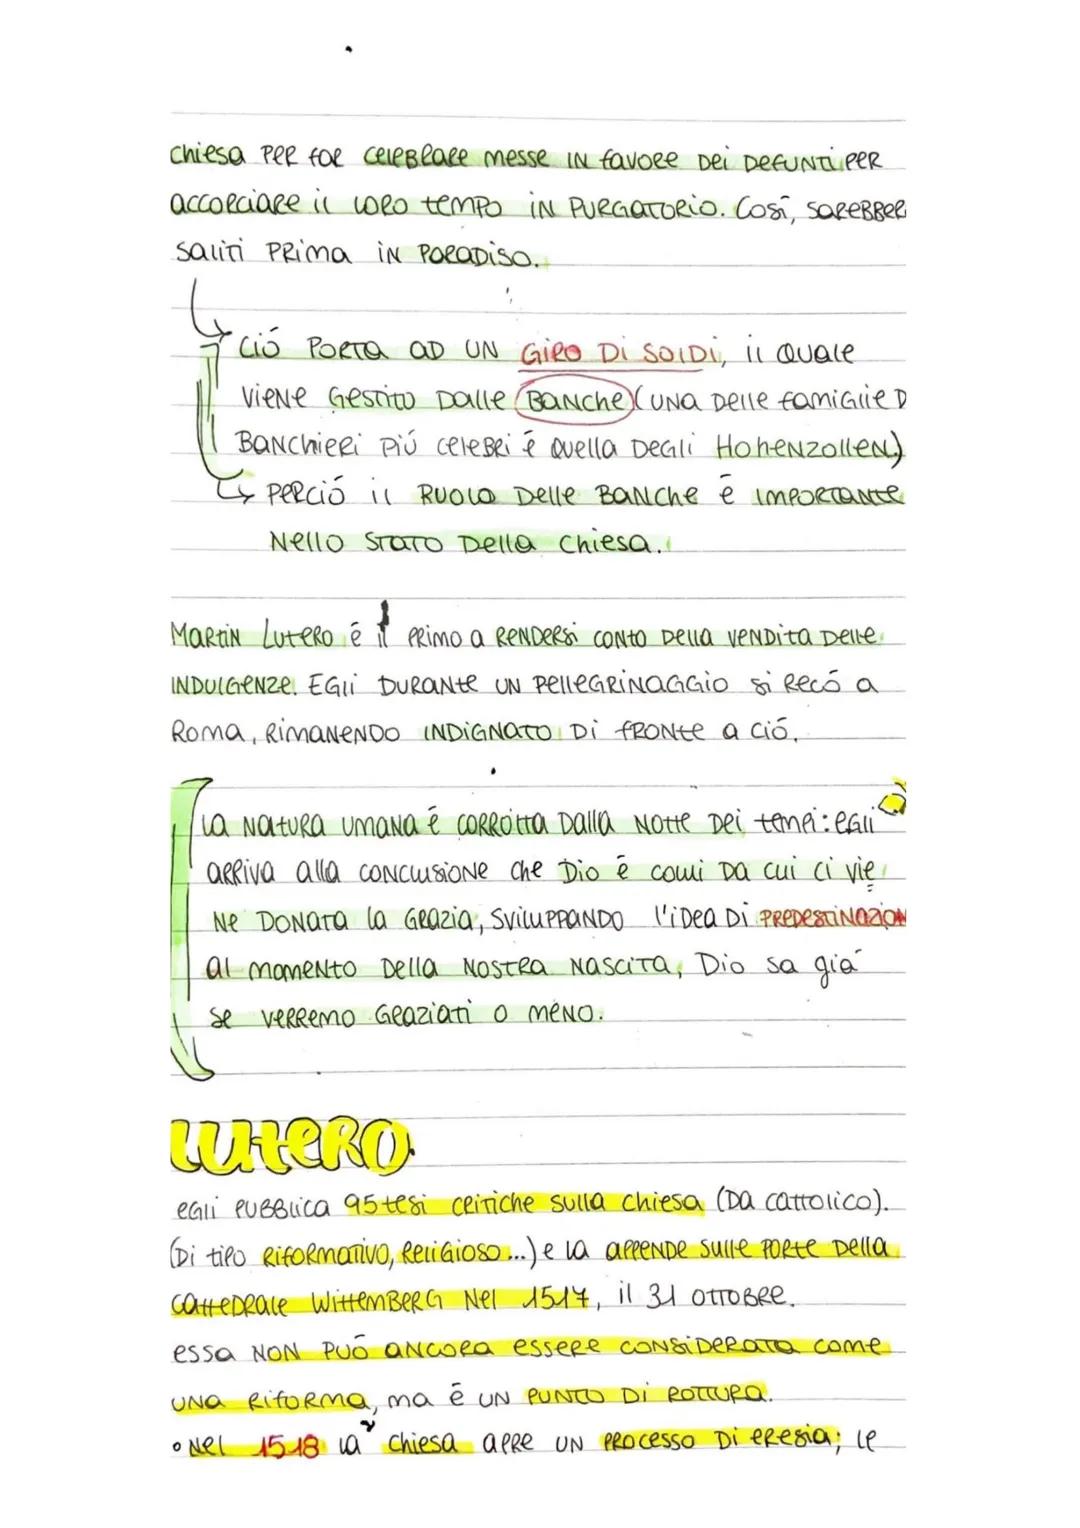 chiesa PER far celebrare messe in favore dei defunti per
accorciare il loro tempo in purgatorio. Così, sarebber
saliti prima in paradiso.
Ció porta ad un GIRO DI SOLDI, il quale
viene gestito dalle Banche (una delle famiglie d
banchieri piú celebri é quella degli Hohenzollen)
Perció il ruolo delle banche é importante
nello stato della chiesa.
Martin Lutero é il primo a rendersi conto della vendita delle
indulgenze. Egli durante un pellegrinaggio si recó a
Roma, rimanendo indignato di fronte a ció.
La natura umana é corrotta dalla notte dei tempi: egli
arriva alla conclusione che Dio é colui da cui ci vie
ne donata la grazia, sviluppando l'idea di PREDESTINAZION
al momento della nostra nascita, Dio sa giá
se verremo graziati o meno.
LUTERO
egli pubblica 95 tesi critiche sulla chiesa (da cattolico).
(Di tipo riformativo, religioso...) e la appende sulle porte della
cattedrale Wittemberg nel 1517, il 31 ottobre.
essa non puó ancora essere considerata come
una riforma, ma é un punto di rottura.
• Nel 1518 la chiesa apre un processo di eresia; le